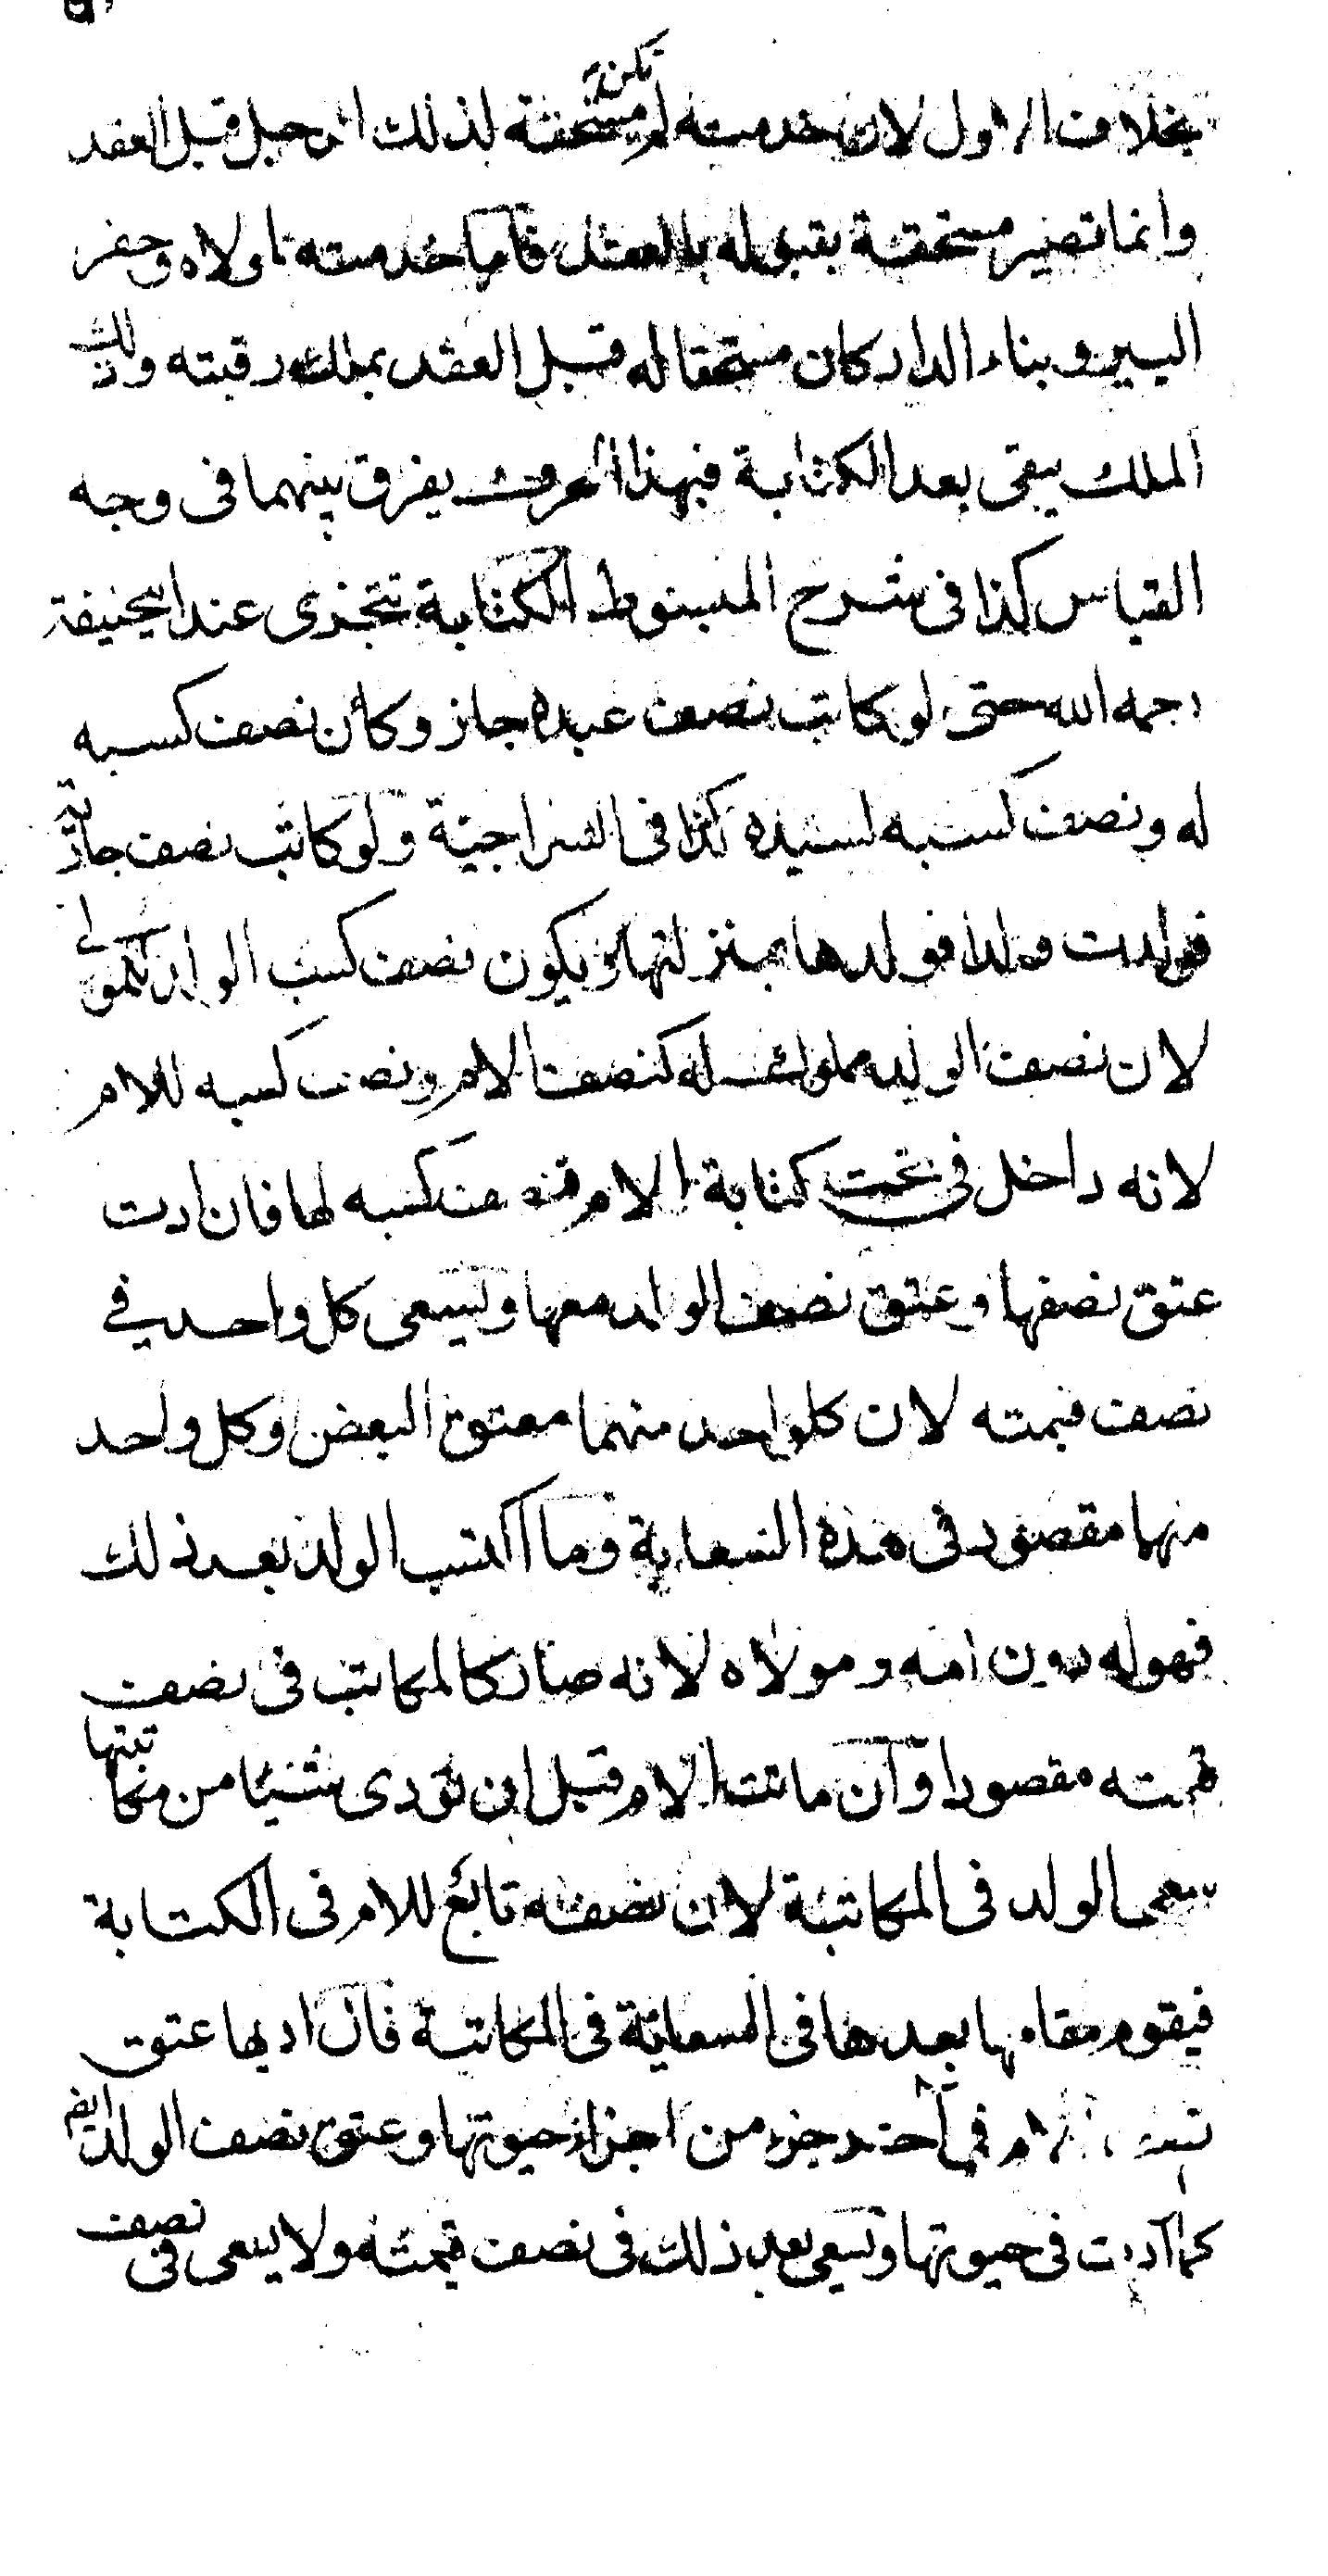 بخلاف الاول لان خدمته لم تكن مستحقة لذلك الرجل قبل العقد
وانما تصير مستحقة بقبوله بالعقد فاما خدمته مولاه وحفر
البير وبناء الدار كان مستحقا له قبل العقد بملك رقبته وذلك
الملك يبقى بعد الكتابة فبهذا الحرف يفرق بينهما فى وجه
القياس كذا فى شرح المبسوط الكتابة تتجزى عند ابيحنيفة
رحمه الله حتى لو كاتب نصف عبده جاز وكان نصف كسبه
له ونصف كسبه لسيده كذا فى السراجية ولو كاتب نصف جاريته
فولدت ولدا فولدها بمنزلتها ويكون نصف كسب الولد للمولى
لان نصف الولد مملوك له كنصف الام ونصف كسبه للام
لانه داخل فى تحت كتابة الام فنصف كسبه لها فان ادت
عتق نصفها وعتق نصف الولد معها ويسعى كل واحد في
نصف قيمته لان كل واحد منهما معتوق البعض وكل واحد
منهما مقصود فى هذه السعاية وما اكتسب الولد بعد ذلك
فهو له دون امه ومولاه لانه صار كالمكاتب فى نصف
قيمته مقصودا وان ماتت الام قبل ان تؤدى شيئا من مكاتبتها
يسعى الولد فى المكاتبة لان نصفه تابع للام فى الكتابة
فيقوم مقامها بعدها فى السعاية فى المكاتبة فان اديها عتق
نصف الام فى آخر جزء من اجزاء حيوتها وعتق نصف الولد ايضا
كما اذا ادت فى حيوتها ويسعى بعد ذلك فى نصف قيمته ولا يسعى فى نصف